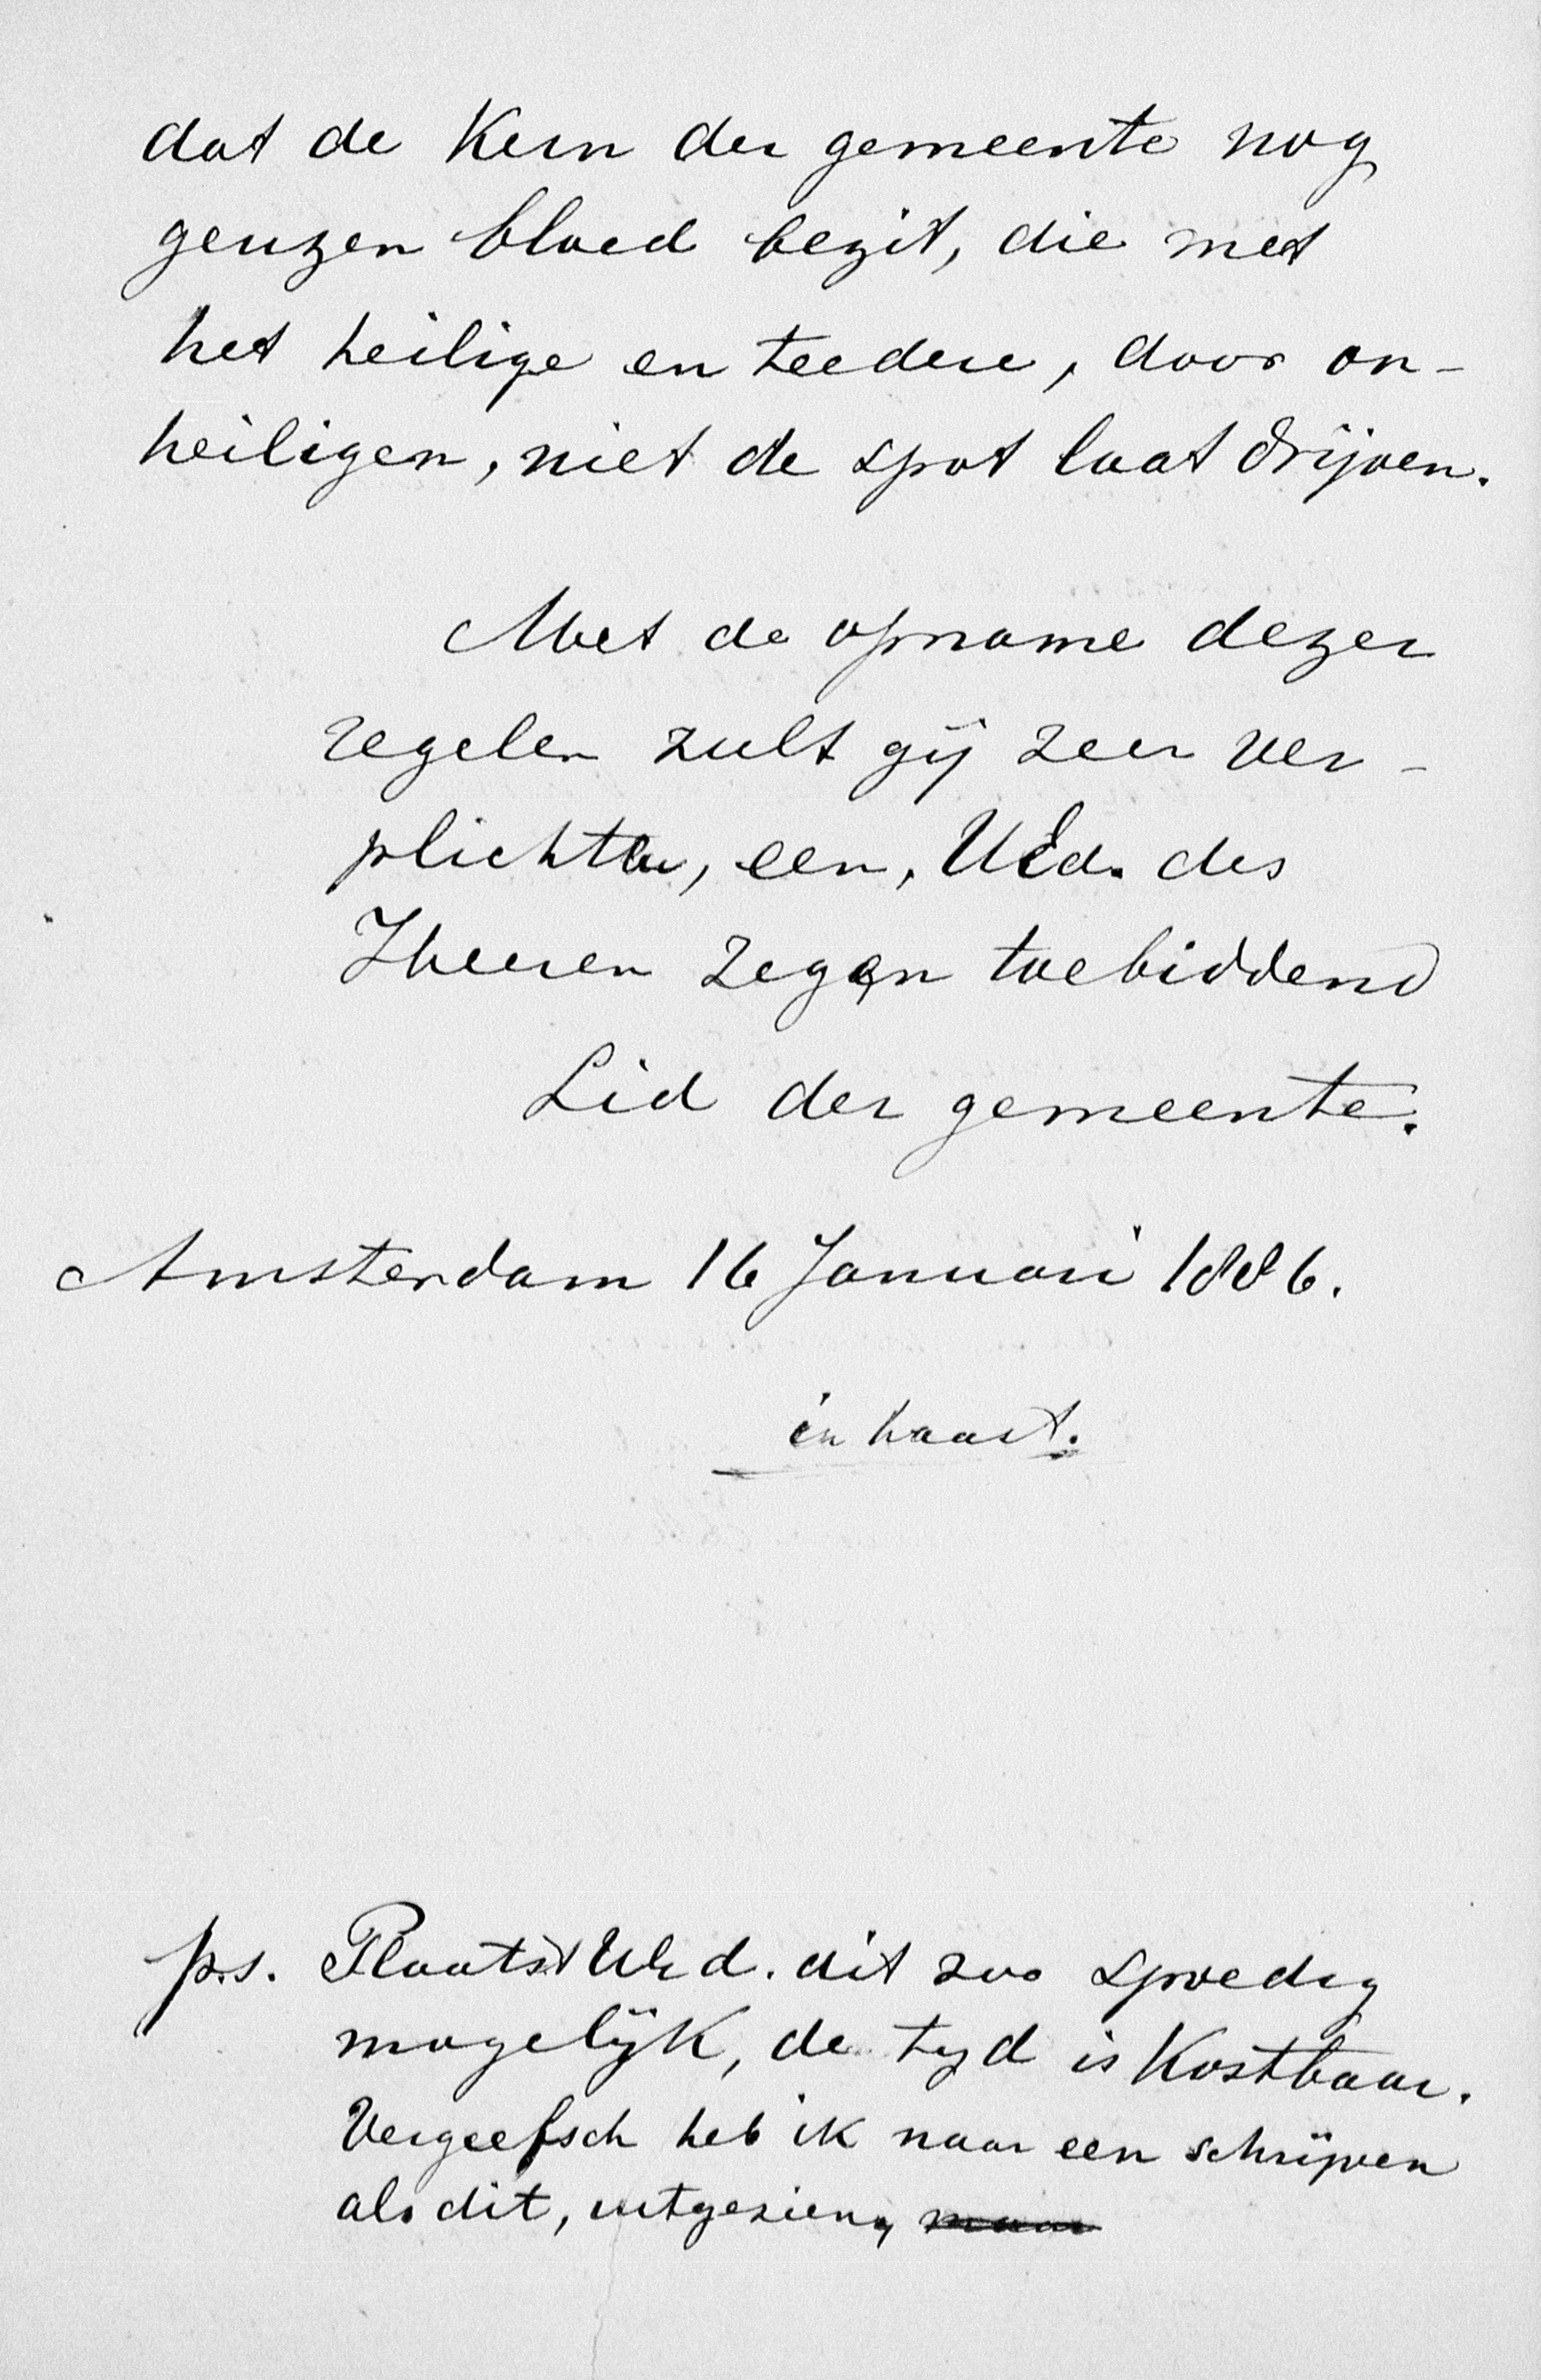 dat de Kern der gemeente nog
geuzen bloed bezit, die met
het heilige en teedere, door on-
heiligen, niet de spot laat drijven.
Met de opname dezer
regelen zult gij zeer ver-
plichten, een, UEd. des
Heeren zegen toebiddend
Lid der gemeente.
Amsterdam 16 Januari 1886.
in haast.
p.s. Plaatst UEd. dit zoo spoedig
mogelijk, de tyd is Kostbaar.
Vergeefsch heb ik naar een schrijven
als dit, uitgezien, maar